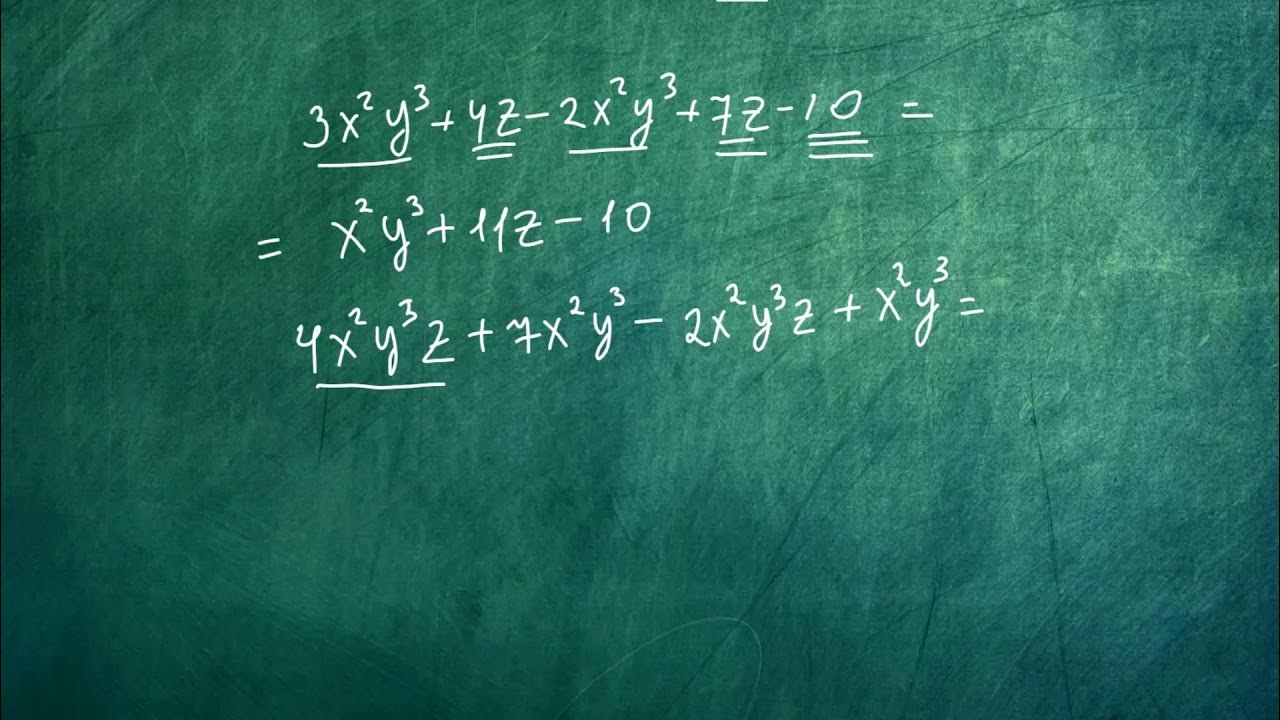 3x²y³+4z-2x²y³+7z-10 =
= x²y³+11z-10
4x²y³z+7x²y³-2x²y³z+x²y³=